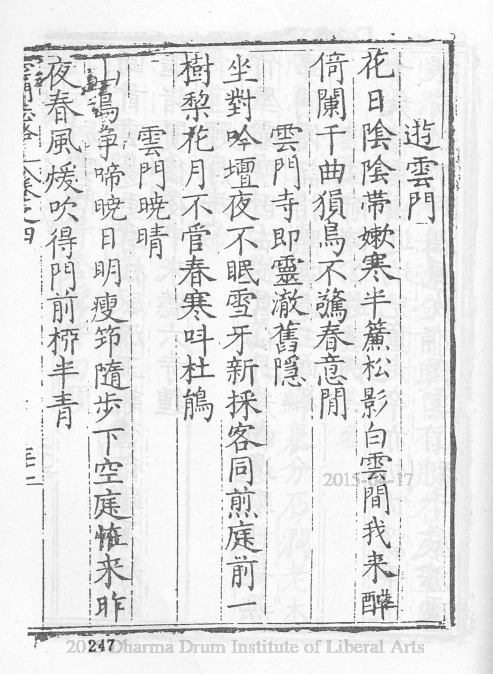 遊雲門
花日陰陰帶嫩寒半簾松影白雲間我来醉
倚闌干曲狽鳥不驚春意閒
雲門寺即靈澈舊隱
坐對吟壇夜不眠雪牙新採客同煎庭前一
樹梨花月不管春寒呌杜鵑
雲門曉晴
山鳥争啼曉日明瘦笻隨步下空庭恠来昨
夜春風煖吹得門前栁半青
雲門志畧卷之四
2015-04-17
247
Dharma Drum Institute of Liberal Arts